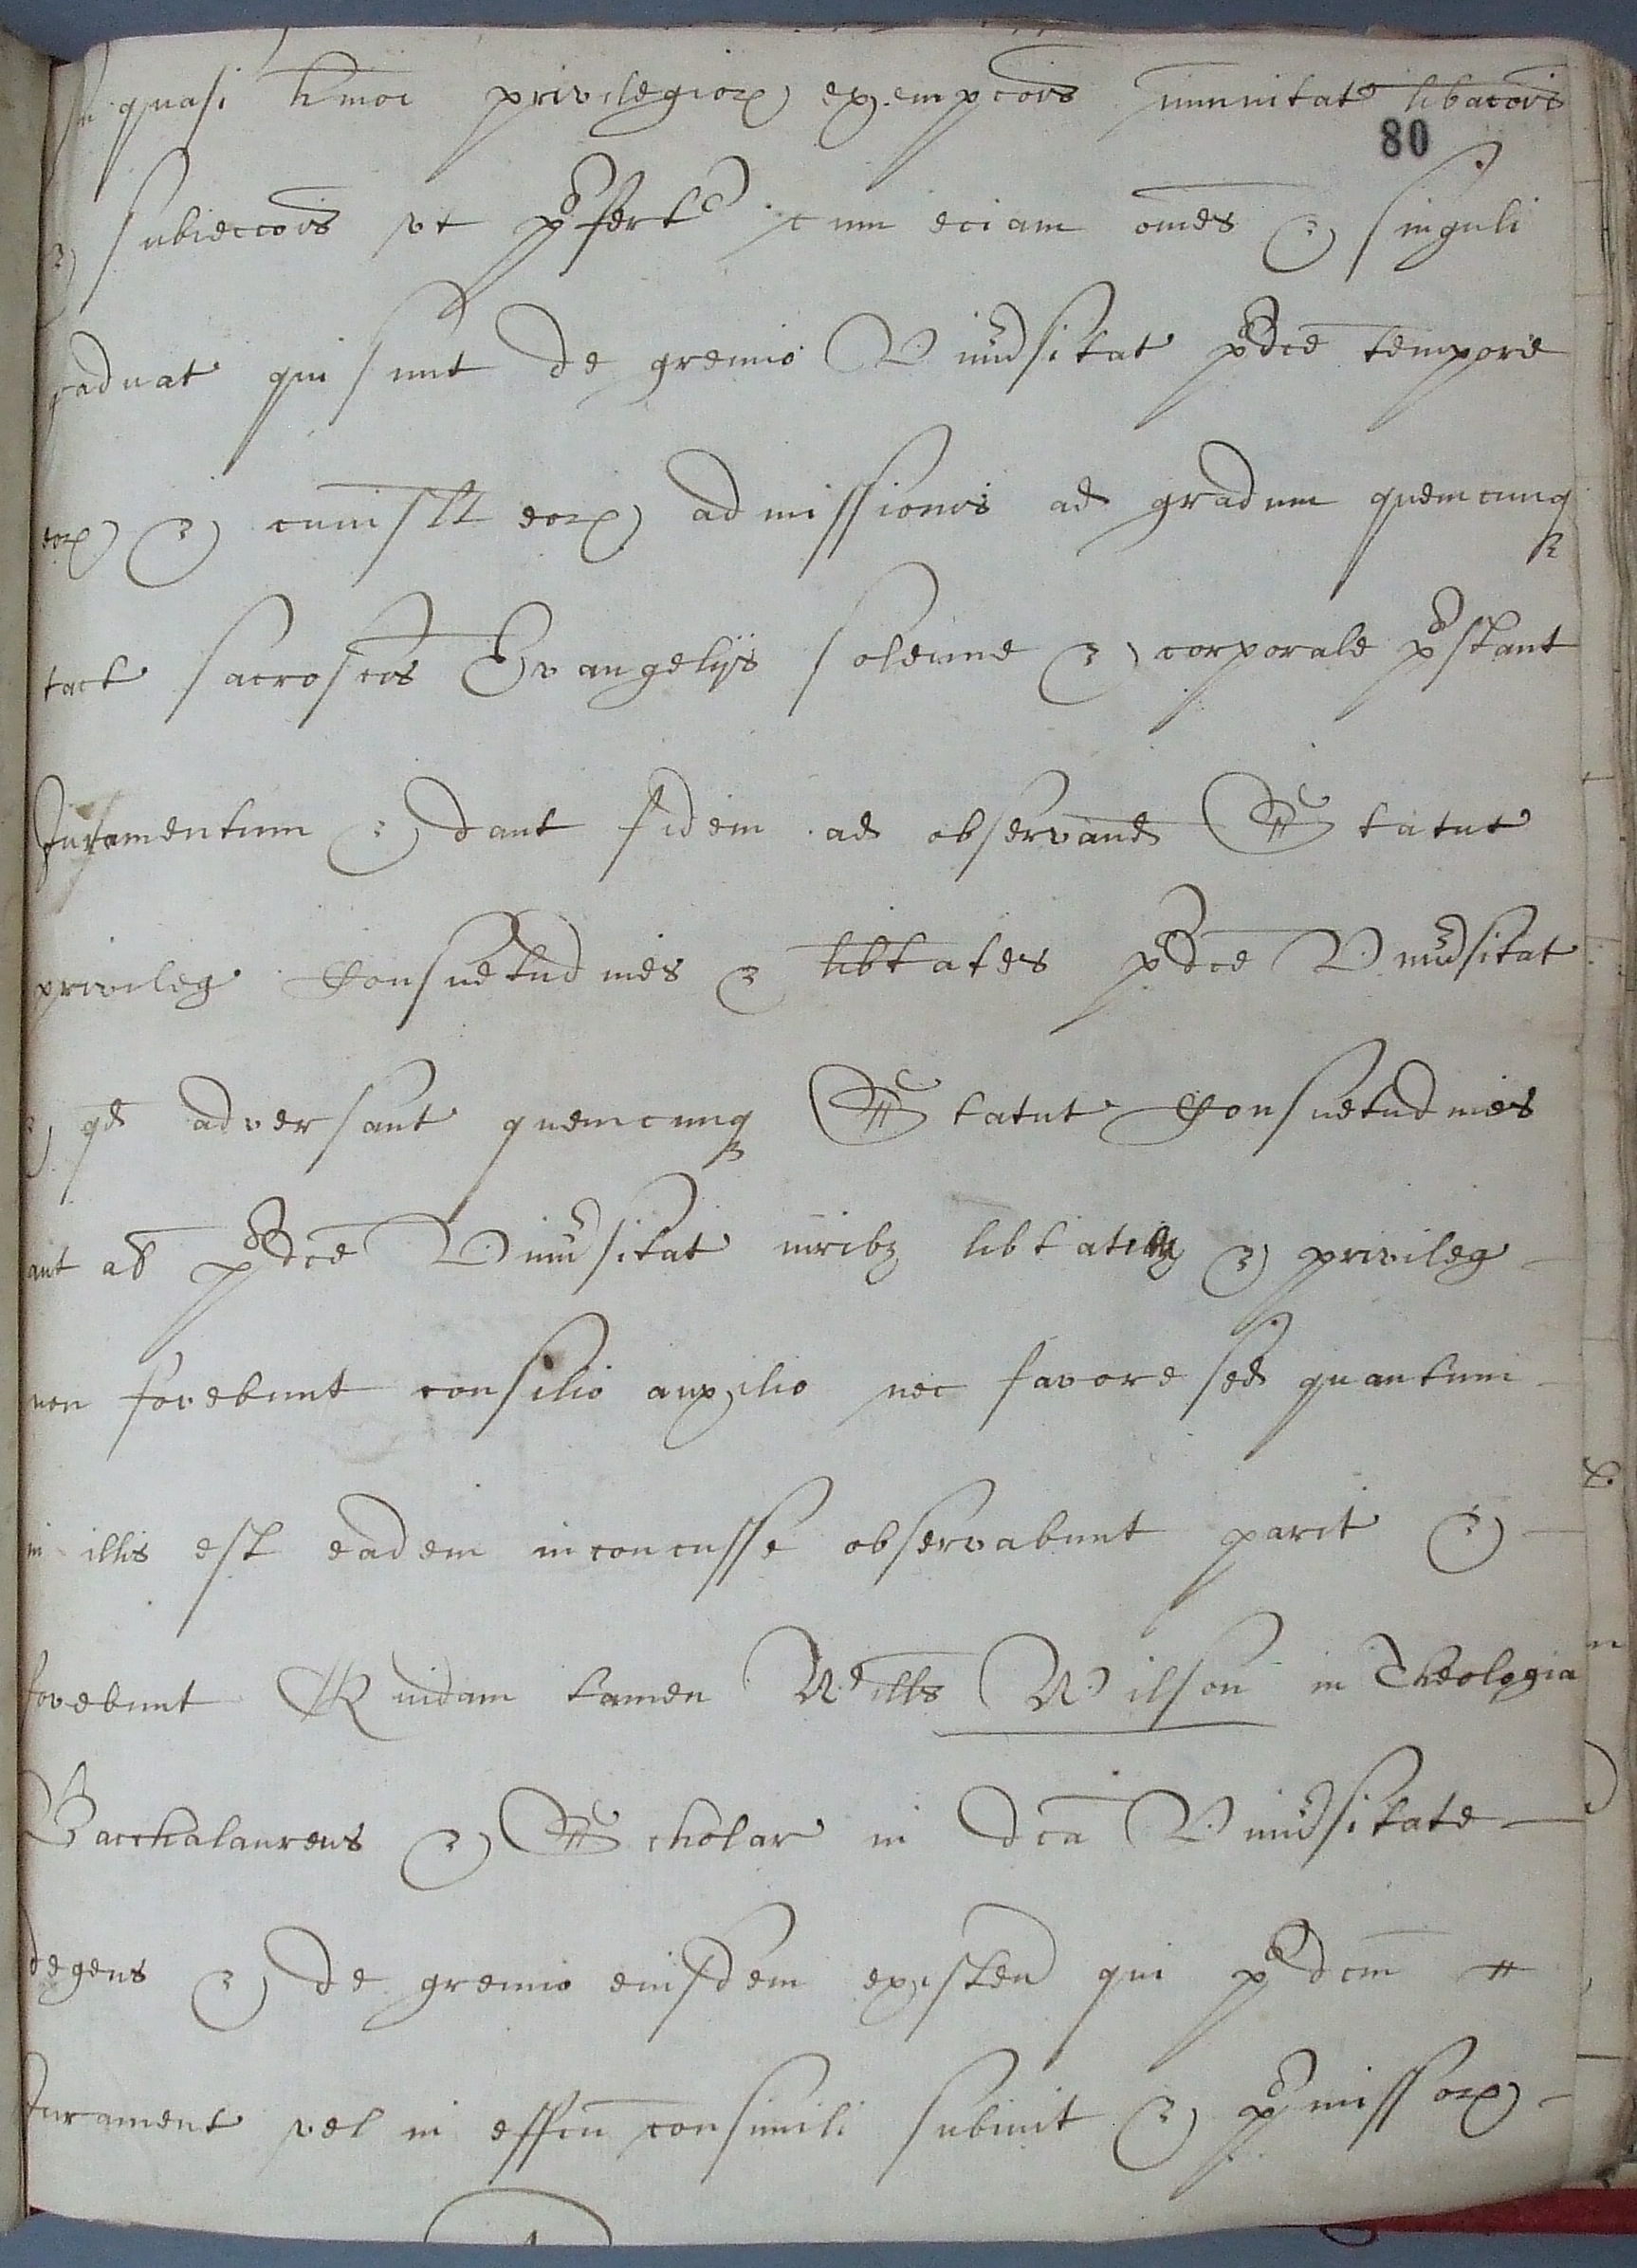 quasi hmoi privilegior exempcois imunitat libacois
80
& subieccois vt pfert cum eciam omes & singuli
graduat qui sunt de gremio Univsitat pdce tempore
eor & cuiuslt eor admissionis ad gradum quemcunq
tact sacroscis Evangelijs solenne & corporale pstant
Juramentum & dant fidem ad observand Statut
privileg Consuetudines & libtates pdce Univsitat
& qd adversant quemcunq Statut Consuetudines
aut ab pdce Univsitat iuribz libtatibz & privileg
non fovebunt consilio auxilio nec favore sed quantum
in illis est eadem inconcusse observabunt parit &
fovebunt Quidam tamen Wills Wilson in Theologia
Bacchalaureus & Scholar in dca Univsitate
degens & de gremio eiusdem existen qui pdcm
Jurament vel in effcu consimili subiuit & pmissor